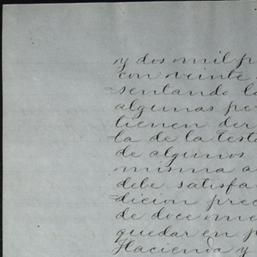 y dos mil p
con veinte
sentando lo
algunas pe
tienen der
la de la testa
de algunos
misma a
debe satisfa
dicion prec
de doce me
quedar en p
Hacienda y